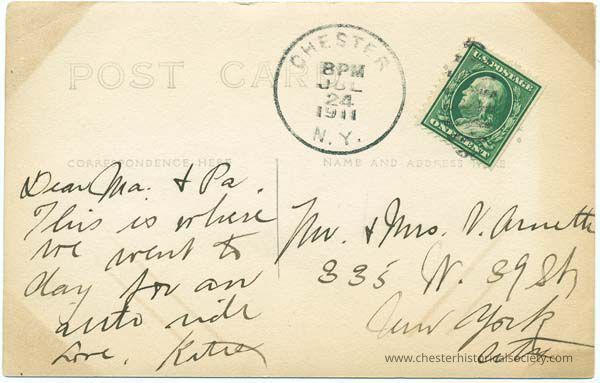 POST CARD
CHESTER
8PM
JUL
24
1911
N.Y.
U.S. POSTAGE
ONE CENT
CORRESPONDENCE HERE
NAME AND ADDRESS HERE
Dear Ma. & Pa.
This is where
we went to
day for an
auto ride
Love, Katie
Mr. & Mrs. V. Arnette
335 W. 39 St
New York
City
www.chesterhistoricalsociety.com